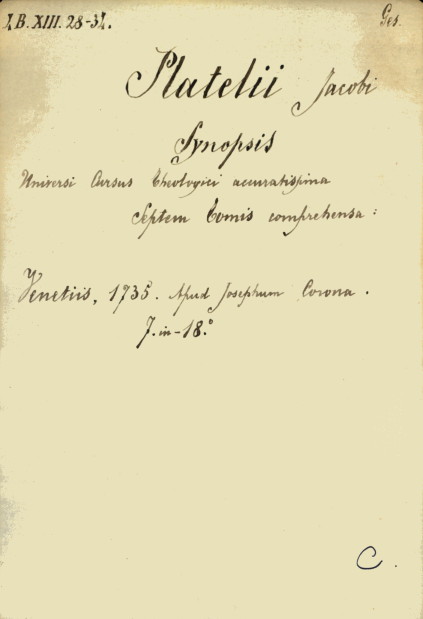 I.B.XIII.28-34.
Ges.
Platelii Jacobi
Synopsis
Universi Cursus Theologici accuratissima
Septem Tomis comprehensa :
Venetiis, 1735. Apud Josephum Corona.
7. in-18.°
C.